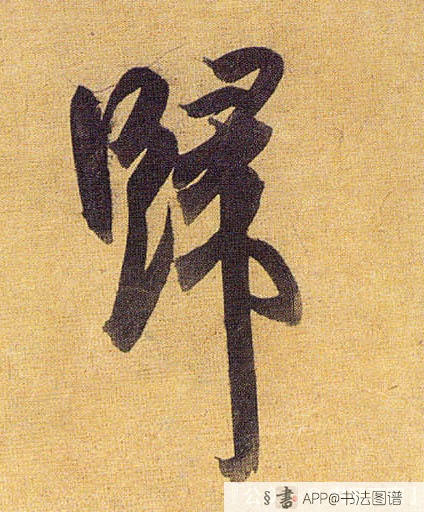 歸
§ 書 APP@书法图谱